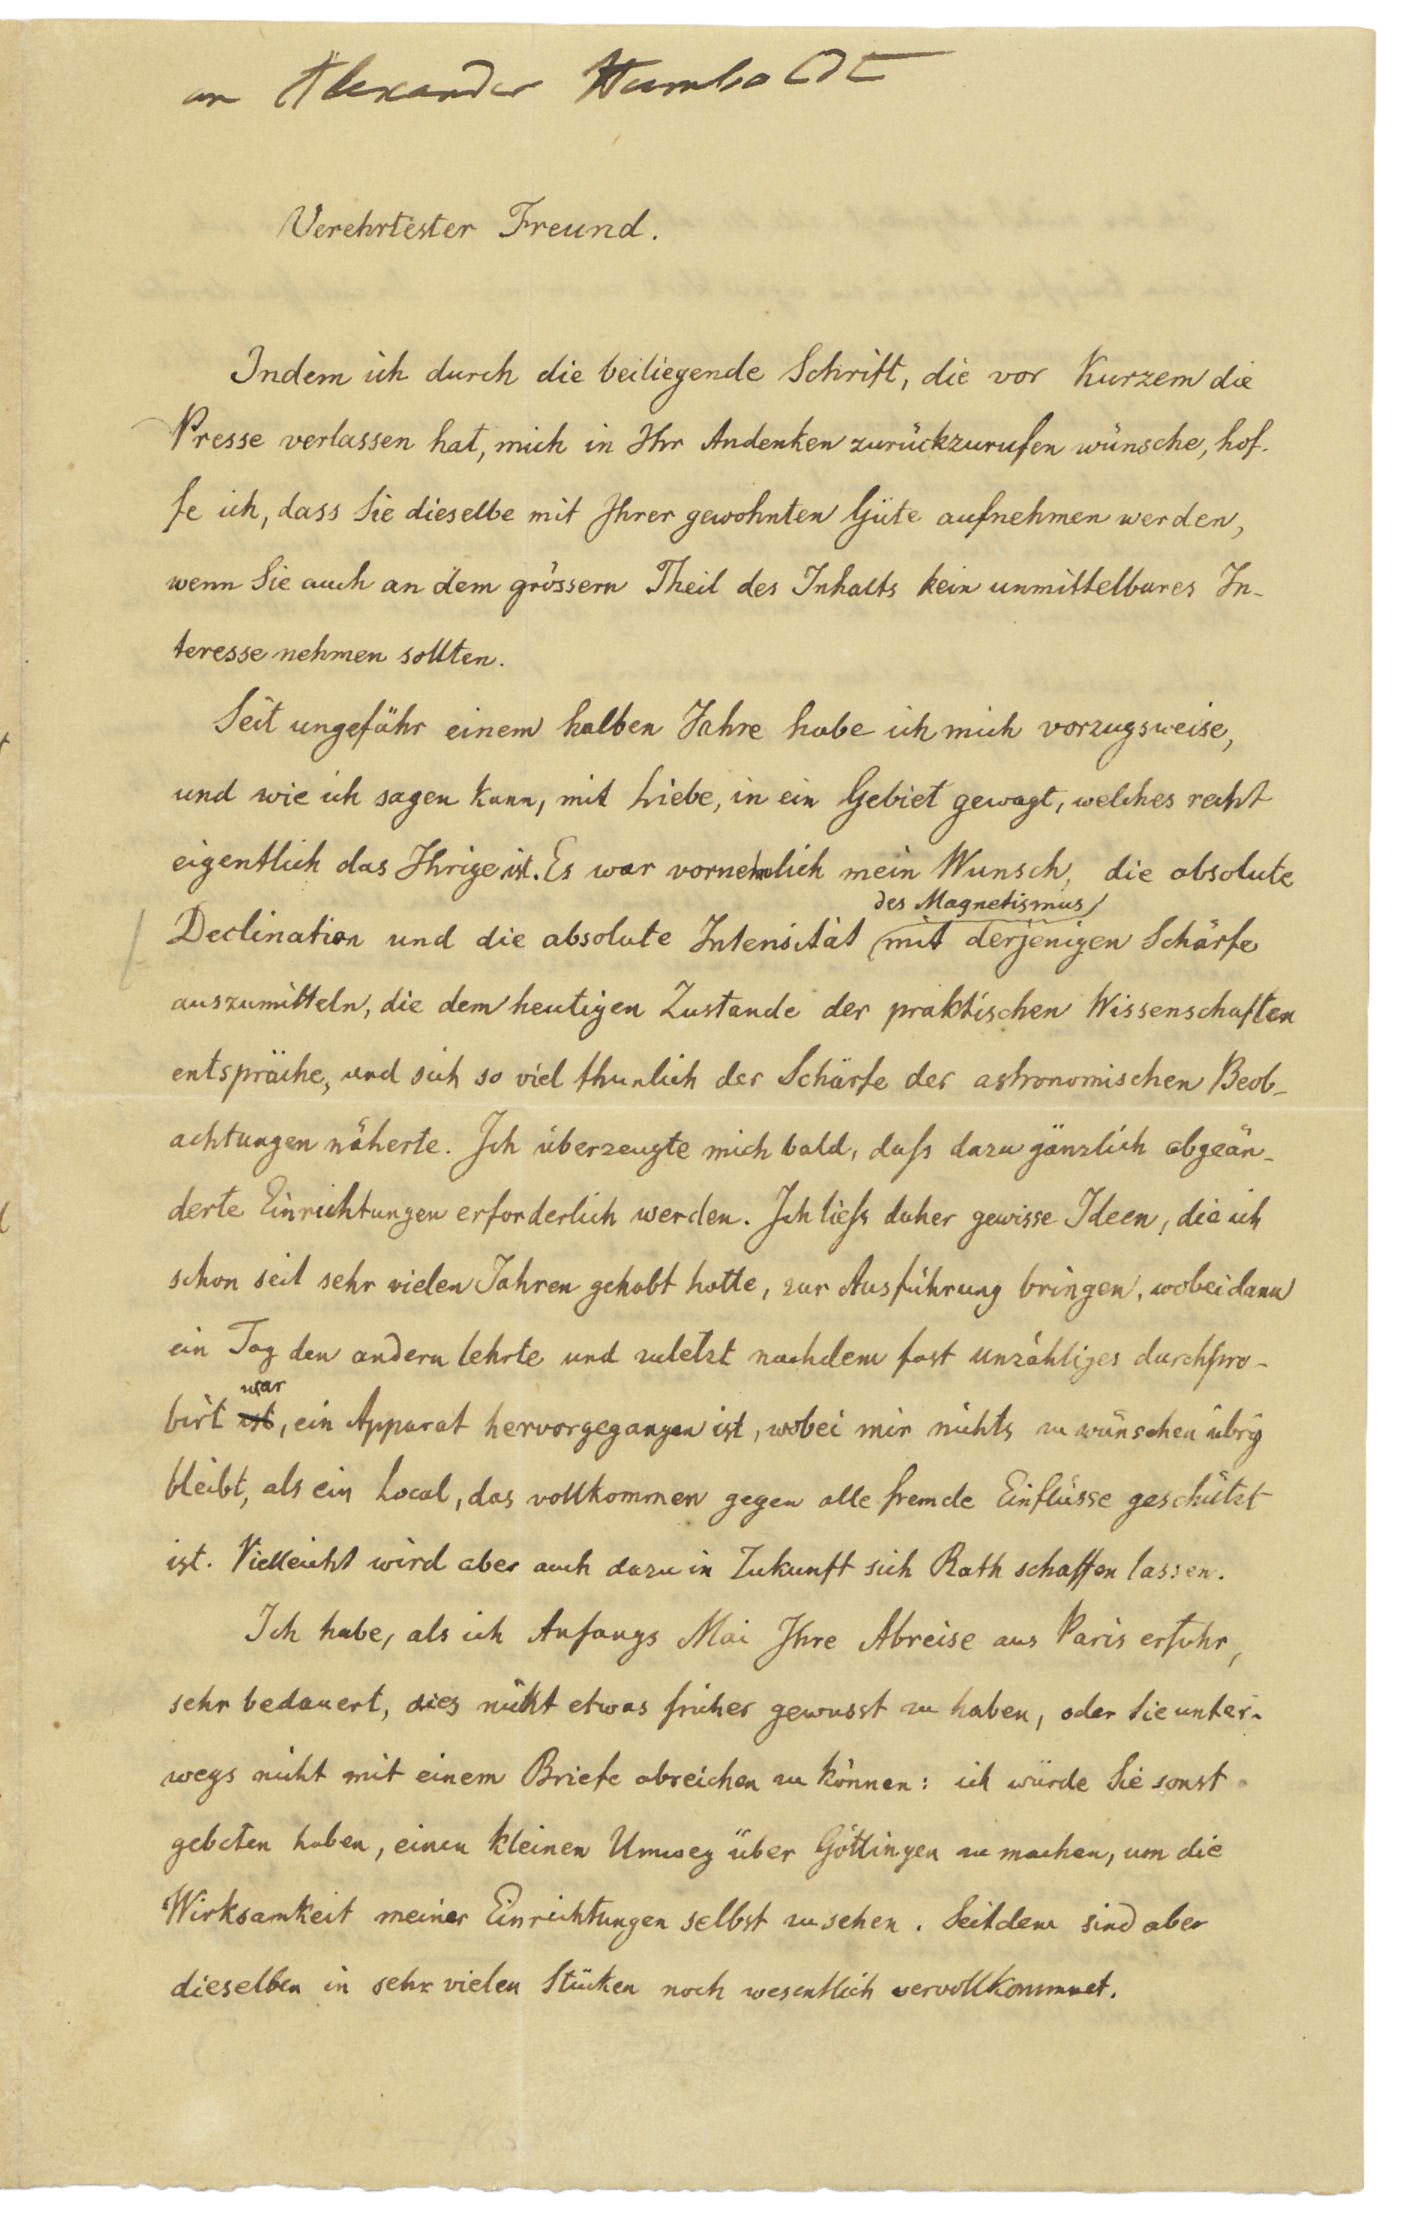 an Alexander Humboldt
Verehrtester Freund.
Indem ich durch die beiliegende Schrift, die vor Kurzem die
Presse verlassen hat, mich in Ihr Andenken zurückzurufen wünsche, hof-
fe ich, dass Sie dieselbe mit Ihrer gewohnten Güte aufnehmen werden,
wenn Sie auch an dem grössern Theil des Inhalts kein unmittelbares In-
teresse nehmen sollten.
Seit ungefähr einem halben Jahre habe ich mich vorzugsweise,
und wie ich sagen kann, mit Liebe, in ein Gebiet gewagt, welches recht
eigentlich das Ihrige ist. Es war vornehmlich mein Wunsch, die absolute
des Magnetismus
Declination und die absolute Intensität mit derjenigen Schärfe
auszumitteln, die dem heutigen Zustande der praktischen Wissenschaften
entspräche, und sich so viel thunlich der Schärfe der astronomischen Beob-
achtungen näherte. Ich überzeugte mich bald, daſs dazu gänzlich abgeän-
derte Einrichtungen erforderlich werden. Ich lieſs daher gewisse Ideen, die ich
schon seit sehr vielen Jahren gehabt hatte, zur Ausführung bringen, wobei dann
ein Tag den andern lehrte und zuletzt nachdem fast unzähliges durchpro-
war
birt ist, ein Apparat hervorgegangen ist, wobei mir nichts zu wünschen übrig
bleibt, als ein Local, das vollkommen gegen alle fremde Einflüsse geschützt
ist. Vielleicht wird aber auch dazu in Zukunft sich Rath schaffen lassen.
Ich habe, als ich Anfangs Mai Ihre Abreise aus Paris erfuhr,
sehr bedauert, dies nicht etwas früher gewusst zu haben, oder Sie unter-
wegs nicht mit einem Briefe abreichen zu können: ich würde Sie sonst
gebeten haben, einen kleinen Umweg über Göttingen zu machen, um die
Wirksamkeit meiner Einrichtungen selbst zu sehen. Seitdem sind aber
dieselben in sehr vielen Stücken noch wesentlich vervollkommnet.